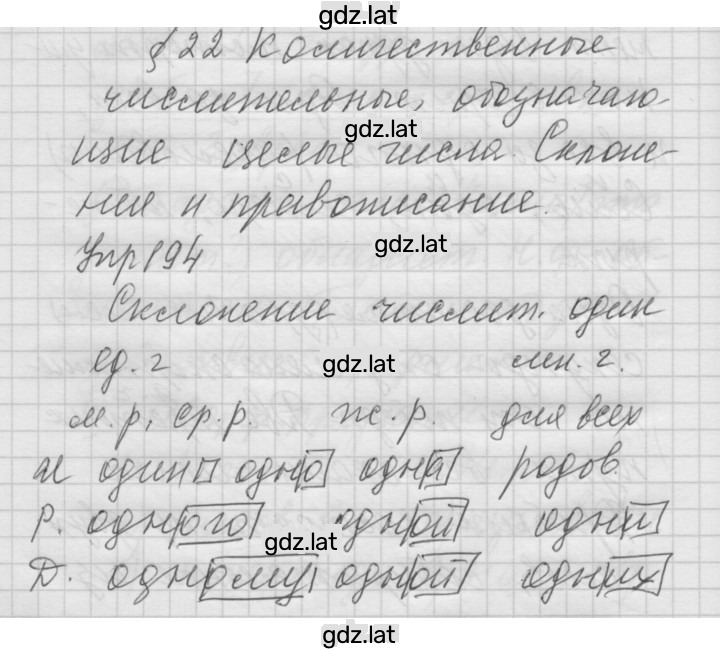 gdz.lat
§ 22 Количественные
числительные, обозначаю-
gdz.lat
щие целые числа. Склоне-
ния и правописание.
gdz.lat
Упр 194
Склонение числит. один
ед. ч gdz.lat мн. ч.
м. р, ср. р. ж. р. для всех
И один одно одна родов.
Р. одного одной одни
gdz.lat
Д. одному одной одних
gdz.lat